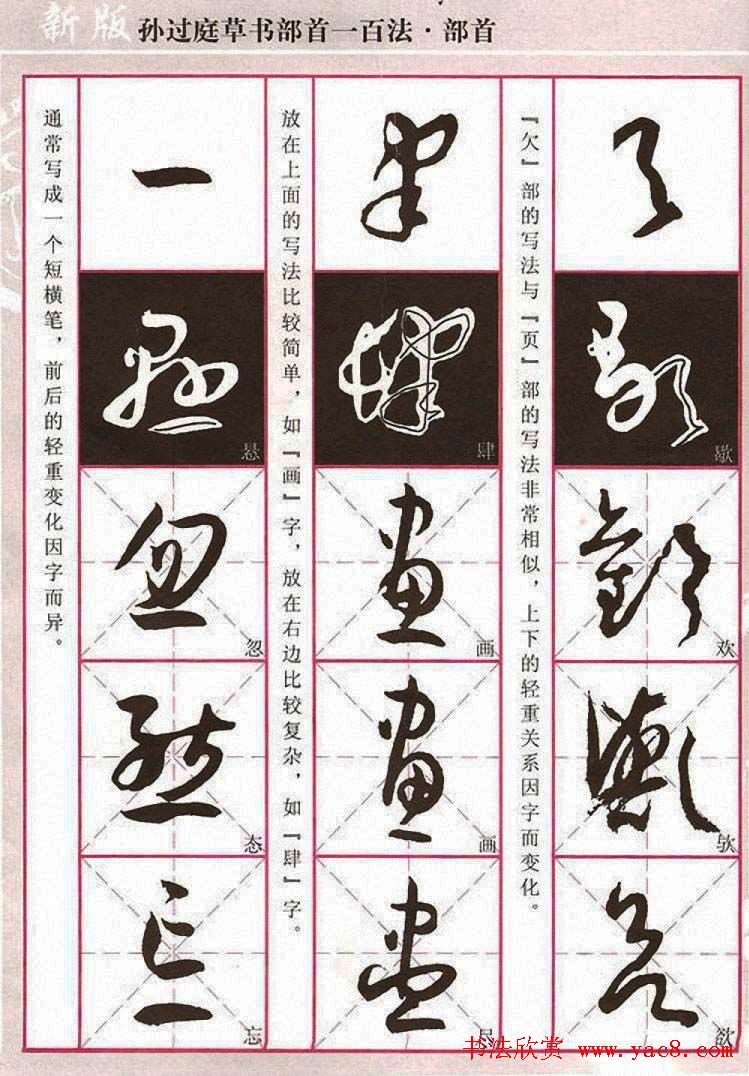 新版 孙过庭草书部首一百法·部首
『欠』部的写法与『页』部的写法非常相似，上下的轻重关系因字而变化。
歇
欢
欤
欲
放在上面的写法比较简单，如『画』字，放在右边比较复杂，如『肆』字。
肆
画
画
尽
通常写成一个短横笔，前后的轻重变化因字而异。
悬
忽
态
忘
书法欣赏 www.yac8.com